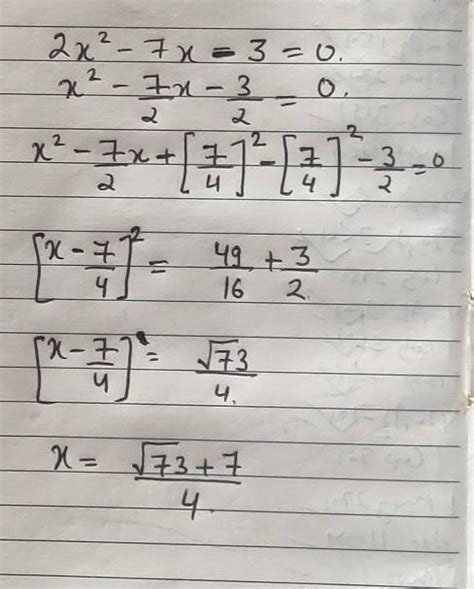 2x² - 7x - 3 = 0.
x² - 7/2 x - 3/2 = 0.
x² - 7x/2 + [7/4]² - [7/4]² - 3/2 = 0
[x - 7/4]² = 49/16 + 3/2.
[x - 7/4] = √73/4.
x = (√73 + 7)/4.